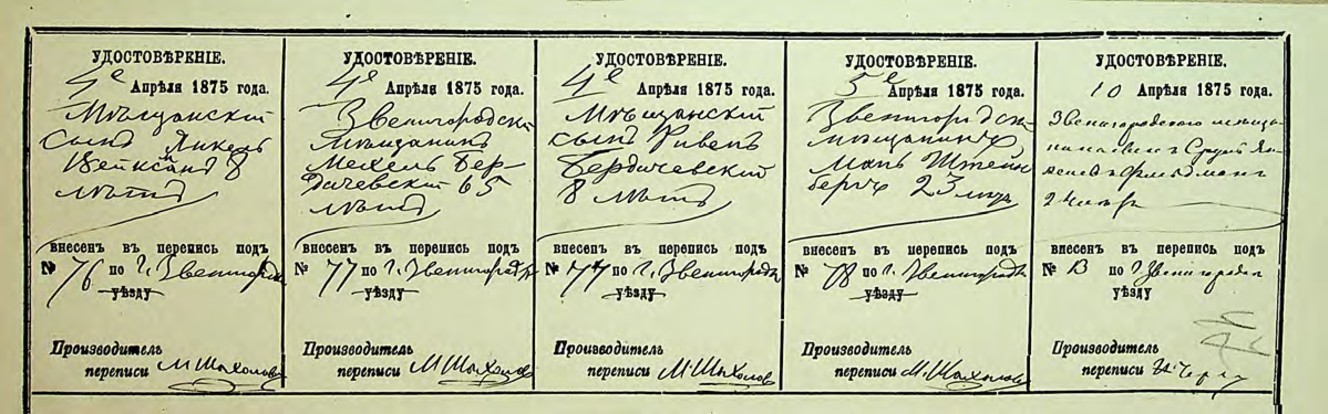 УДОСТОВѢРЕНІЕ.
4е Апрѣля 1875 года.
Мѣщанскій
сынъ Янкель
Вейнсанъ 8
лѣтъ
внесенъ въ перепись подъ
№ 76 по г. Звенигородкѣ
уѣзду
Производитель
переписи М. Шахоловъ
УДОСТОВѢРЕНІЕ.
4е Апрѣля 1875 года.
Звенигородскій
мѣщанинъ
Мехель Бер-
дичевскій 65
лѣтъ
внесенъ въ перепись подъ
№ 77 по г. Звенигородкѣ
уѣзду
Производитель
переписи М. Шахоловъ
УДОСТОВѢРЕНІЕ.
4е Апрѣля 1875 года.
Мѣщанскій
сынъ Рувенъ
Бердичевскій
8 лѣтъ
внесенъ въ перепись подъ
№ 77 по г. Звенигородкѣ
уѣзду
Производитель
переписи М. Шахоловъ
УДОСТОВѢРЕНІЕ.
5е Апрѣля 1875 года.
Звенигородскій
мѣщанинъ
Штейн
бергъ 23 лѣтъ
внесенъ въ перепись подъ
№ 78 по г. Звенигородкѣ
уѣзду
Производитель
переписи М. Шахоловъ
УДОСТОВѢРЕНІЕ.
10 Апрѣля 1875 года.
Звенигородскаго мѣща-
нина
внесенъ въ перепись подъ
№ по г. Звенигородкѣ
уѣзду
Производитель
переписи